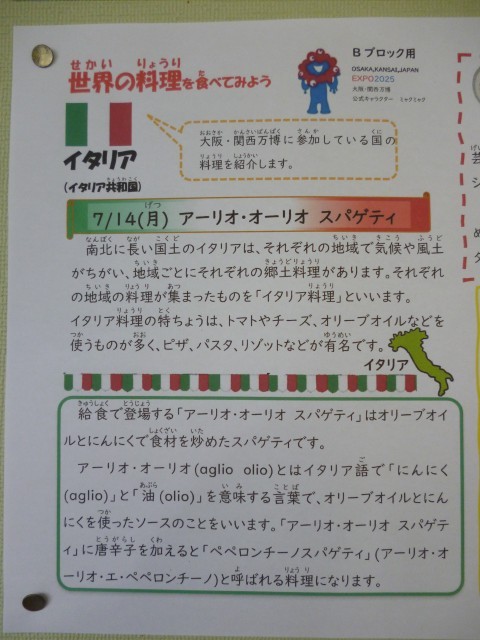 Bブロック用
せかい りょうり
世界の料理を食べてみよう
OSAKA, KANSAI, JAPAN
EXPO2025
大阪・関西万博
公式キャラクター ミャクミャク
イタリア
(イタリア共和国)
大阪・関西万博に参加している国の
料理を紹介します。
7/14(月) アーリオ・オーリオ スパゲティ
南北に長い国土のイタリアは、それぞれの地域で気候や風土
がちがい、地域ごとにそれぞれの郷土料理があります。それぞれ
の地域の料理が集まったものを「イタリア料理」といいます。
イタリア料理の特ちょうは、トマトやチーズ、オリーブオイルなどを
使うものが多く、ピザ、パスタ、リゾットなどが有名です。
イタリア
給食で登場する「アーリオ・オーリオ スパゲティ」はオリーブオイ
ルとにんにくで食材を炒めたスパゲティです。
アーリオ・オーリオ(aglio olio)とはイタリア語で「にんにく
(aglio)」と「油(olio)」を意味する言葉で、オリーブオイルとにん
にくを使ったソースのことをいいます。「アーリオ・オーリオ スパゲ
ティ」に唐辛子を加えると「ペペロンチーノスパゲティ」(アーリオ・オ
ーリオ・エ・ペペロンチーノ)と呼ばれる料理になります。